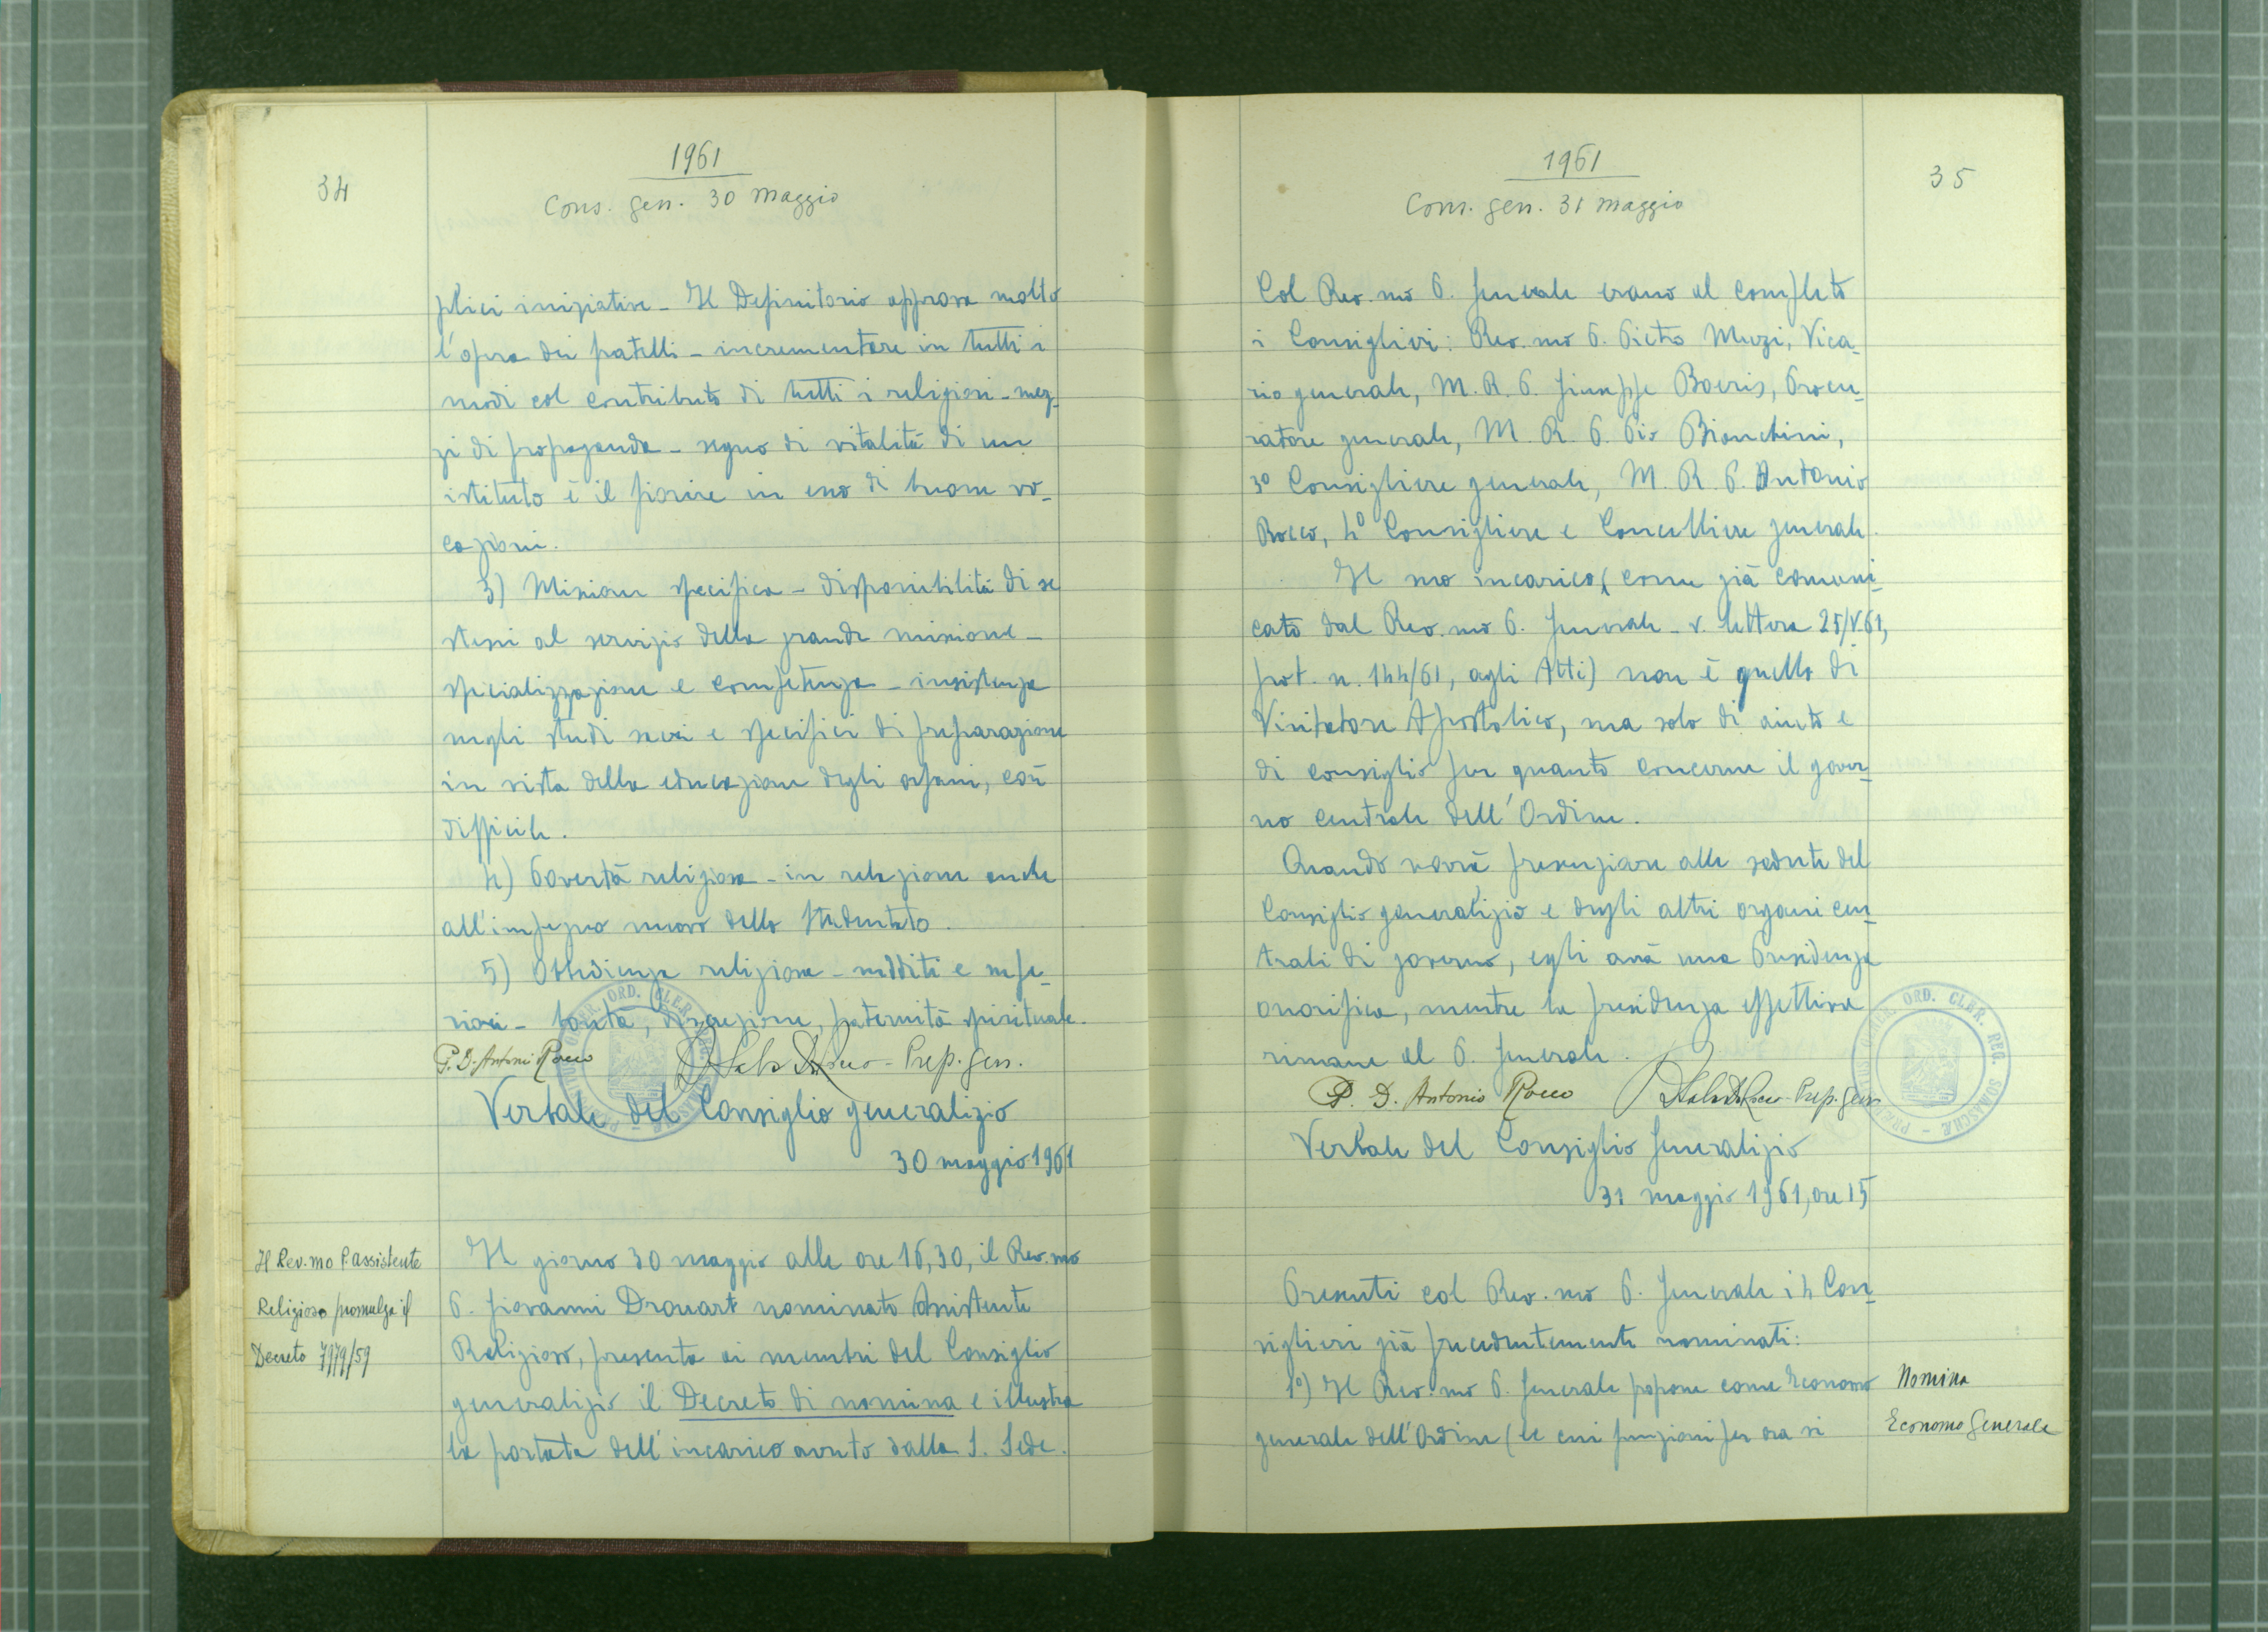 34
1961
Cons. gen. 30 maggio
plici iniziative - Il Definitorio approva molto
l'opera dei fratelli - incrementare in tutti i
modi col contributo di tutti i religiosi - mez-
zi di propaganda - segno di vitalità di un
istituto è il fiorire in esso di buone vo-
cazioni.
3) Missione specifica - disponibilità di se
stessi al servizio della grande missione -
specializzazione e competenza - insistenza
negli studi sacri e specifici di preparazione
in vista della educazione degli orfani, così
difficile.
4) Povertà religiosa - in relazione anche
all'impegno nuovo dello Studentato.
5) Obbedienza religiosa - sudditi e supe-
riori - bontà, discrezione, paternità spirituale.
P. D. Antonio Rocco
Prep. gen.
Verbale del Consiglio generalizio
30 maggio 1961
Il Rev.mo P. Assistente
Religioso promulga il
Decreto 7979/59
Il giorno 30 maggio alle ore 16,30, il Rev.mo
P. Giovanni Drouart nominato Assistente
Religioso, presenta ai membri del Consiglio
generalizio il Decreto di nomina e illustra
la portata dell'incarico avuto dalla S. Sede.
35
1961
Cons. gen. 31 maggio
Col Rev.mo P. Generale erano al completo
i Consiglieri: Rev.mo P. Pietro Muzi, Vica-
rio generale, M. R. P. Giuseppe Boeris, Procu-
ratore generale, M. R. P. Pio Bianchini,
3° Consigliere generale, M. R. P. Antonio
Rocco, 4° Consigliere e Cancelliere generale.
Il suo incarico (come già comuni-
cato dal Rev.mo P. Generale - v. lettera 25/V.61,
prot. n. 144/61, agli Atti) non è quello di
Visitatore Apostolico, ma solo di aiuto e
di consiglio per quanto concerne il gover-
no centrale dell'Ordine.
Quando vorrà presenziare alle sedute del
Consiglio generalizio e degli altri organi cen-
trali di governo, egli avrà una Presidenza
onorifica, mentre la presidenza effettiva
rimane al P. Generale.
P. D. Antonio Rocco
Prep. gen.
ORD. CLER. REG. SOMASCHAE
Verbale del Consiglio Generalizio
31 maggio 1961, ore 15
Presenti col Rev.mo P. Generale i 4 Con-
siglieri già precedentemente nominati:
1°) Il Rev.mo P. Generale propone come Economo
generale dell'Ordine (le cui funzioni per ora si
Nomina
Economo Generale